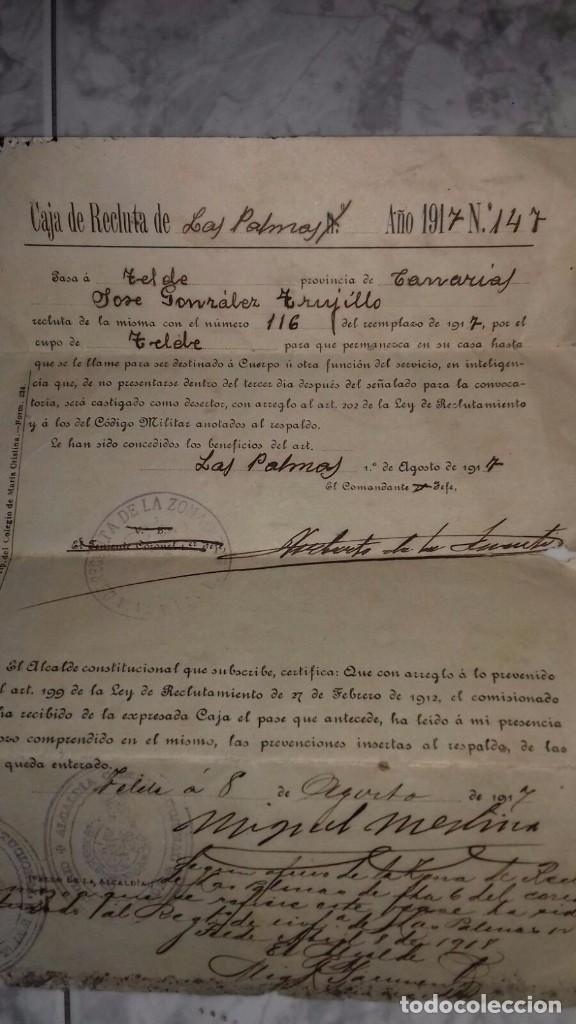 Caja de Recluta de Las Palmas N.º Año 1917 N.º 147
Pasa á Telde provincia de Canarias
Jose González Trujillo
recluta de la misma con el número 116 del reemplazo de 1917, por el
cupo de Telde para que permanezca en su casa hasta
que se le llame para ser destinado á Cuerpo ú otra función del servicio, en inteligen-
cia que, de no presentarse dentro del tercer día después del señalado para la convoca-
toria, será castigado como desertor, con arreglo al art. 202 de la Ley de Reclutamiento
y á los del Código Militar anotados al respaldo.
Le han sido concedidos los beneficios del art.
Las Palmas 1.º de Agosto de 1917
El Comandante Jefe,
V. B.
El Teniente Coronel, 1.er Jefe,
Norberto de la
DE LA ZONA
Tip. del Colegio de María Cristina.—Form. 234
El Alcalde constitucional que subscribe, certifica: Que con arreglo á lo prevenido
l art. 199 de la Ley de Reclutamiento de 27 de Febrero de 1912, el comisionado
ha recibido de la expresada Caja el pase que antecede, ha leído á mi presencia
ozo comprendido en el mismo, las prevenciones insertas al respaldo, de las
queda enterado.
Telde á 8 de Agosto de 1917
Miguel Medina
ALCALDIA
(SELLO DE LA ALCALDÍA)
de la Zona de
Las Palmas de fha 6 del
este pase ha sid
de Las Palmas
Telde Abril 8 de 1918
El Alcalde
todocoleccion
todocoleccion.net